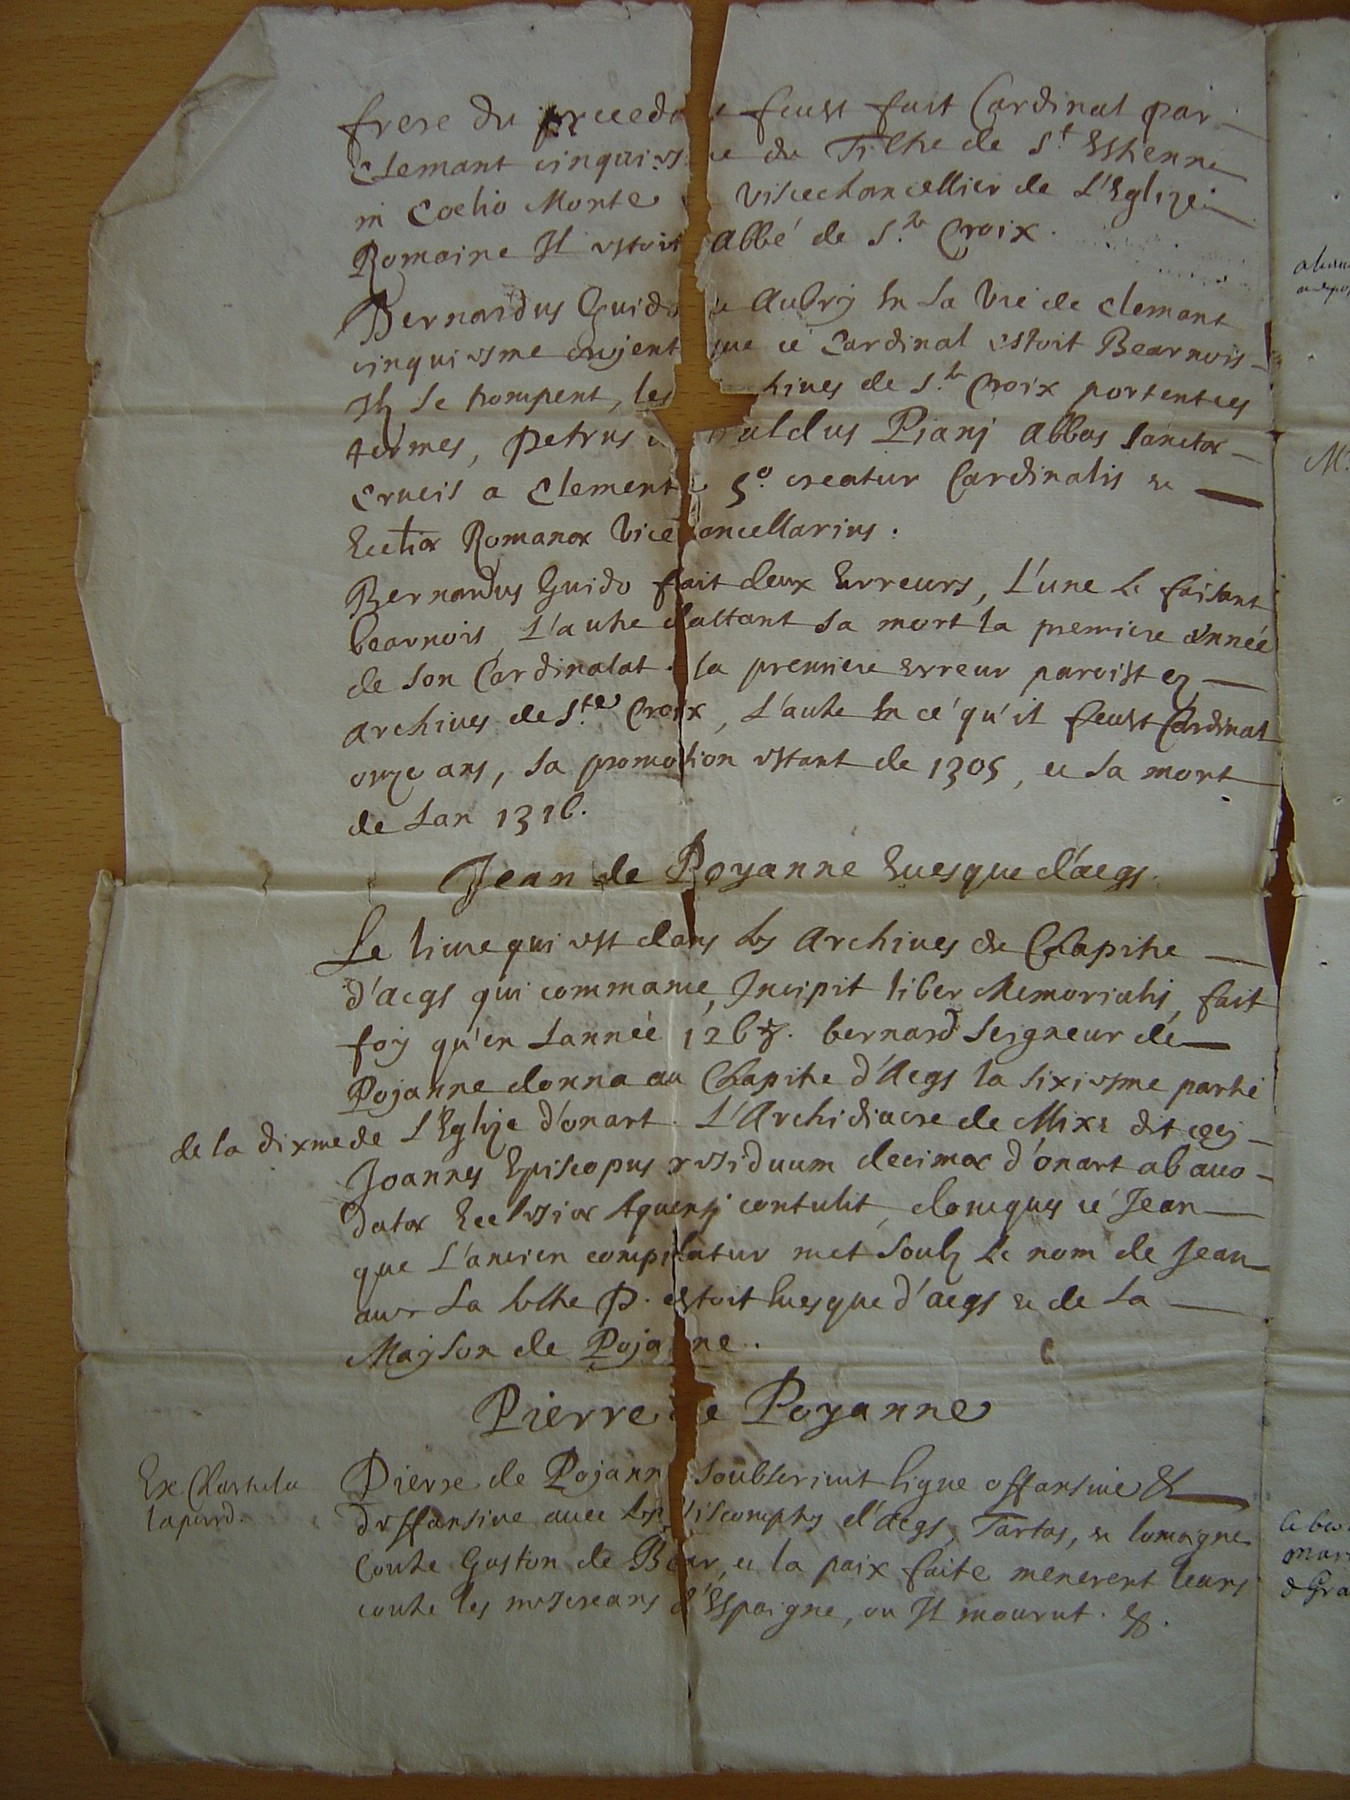 frere du precede feust fait Cardinal par
Clemant cinquiesme du Tiltre de St Estienne
in Coelio Monte Viscechancellier de L'Eglize
Romaine Il estoit Abbé de Ste Croix.
Bernardus Guido Aubry En La Vie de Clemant
cinquiesme que ce Cardinal estoit Bearnois
Ilz Se trompent, les hives de Ste Croix portent ces
termes, Petrus aldus Piani abbas Sanctæ
Crucis a Clemente 5.º creatur Cardinalis et
Eccliæ Romanæ Vicecancellarius.
Bernardus Guido fait deux Erreurs, L'une Le faisant
bearnois, L'autre dattant Sa mort la premiere année
de Son Cardinalat. la premiere erreur paroist ez
archives de Ste Croix, L'autre En ce qu'il feust Cardinal
onze ans, Sa promotion estant de 1305, et Sa mort
de Lan 1316.
Jean de Poyanne Euesque d'acqs.
Le liure qui est dans les Archiues du Chapitre
d'acqs qui commance, Incipit liber Memorialis, fait
foy qu'en Lanneé bernard Seigneur de
Pojanne donna au Chapitre d'Acqs la Sixiesme partie
de la dixme de L'Eglize d'onart. L'Archidiacre de Mixe dit
Joannes Episcopus residuum decimæ d'onart ab
Ecclesiæ Aquensi contulit, doncques ce Jean
que L'ancien compilatur met Soubz Le nom de Jean
auec La lettre P. estoit Euesque d'acqs et de La
Mayson de Pojanne.
Pierre de Poyanne
Ex Chartula
lapurd.
Pierre de Pojann Soubscriuit ligue offansiue &
deffansiue auec Les Viscomptes d'acqs, Tartas, et lomagne
Contre Gaston de Bear, et la paix faite menerent leurs
contre les d'Espaigne, ou Il mourut. &.